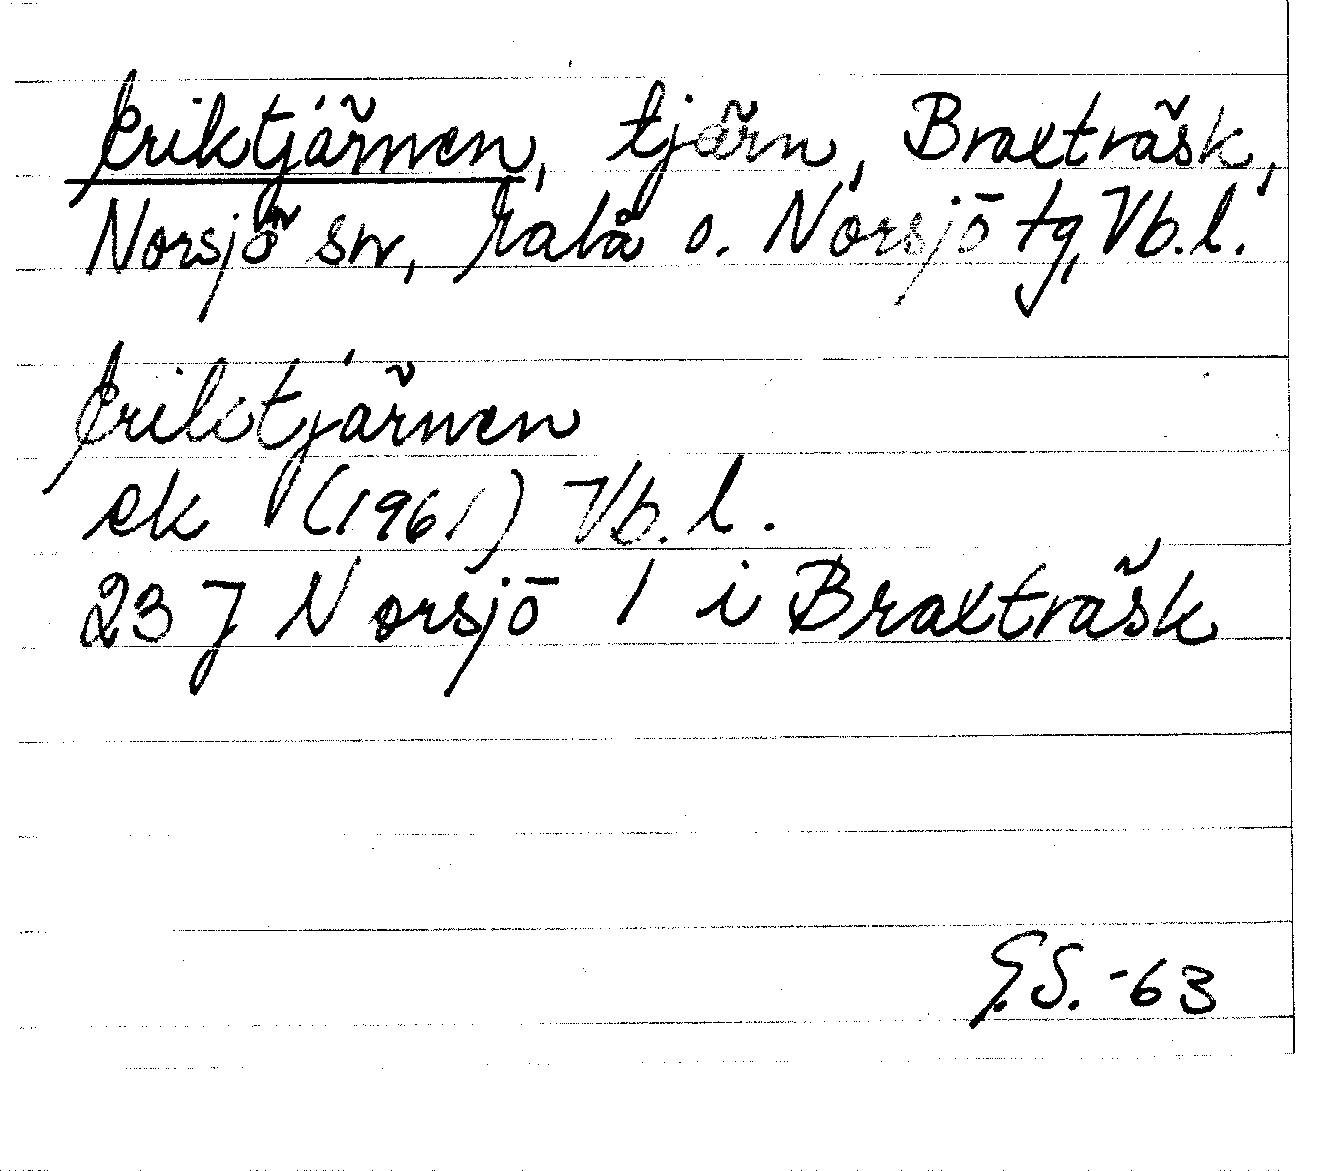 Eriktjärnen, tjärn, Braxträsk,
Norsjö sn, Malå o. Norsjö tg, Vb.l.
Eriktjärnen
ek (1961) Vb. l.
23 J Norsjö 1 i Braxträsk
G.S. -63